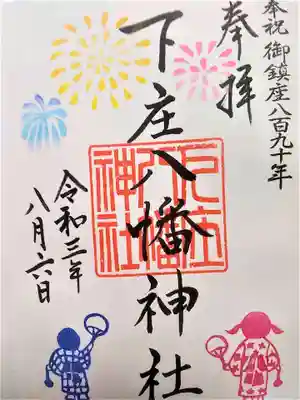 奉祝 御鎮座八百九十年
奉拝
下庄八幡神社
下庄
八幡
神社
令和三年
八月六日